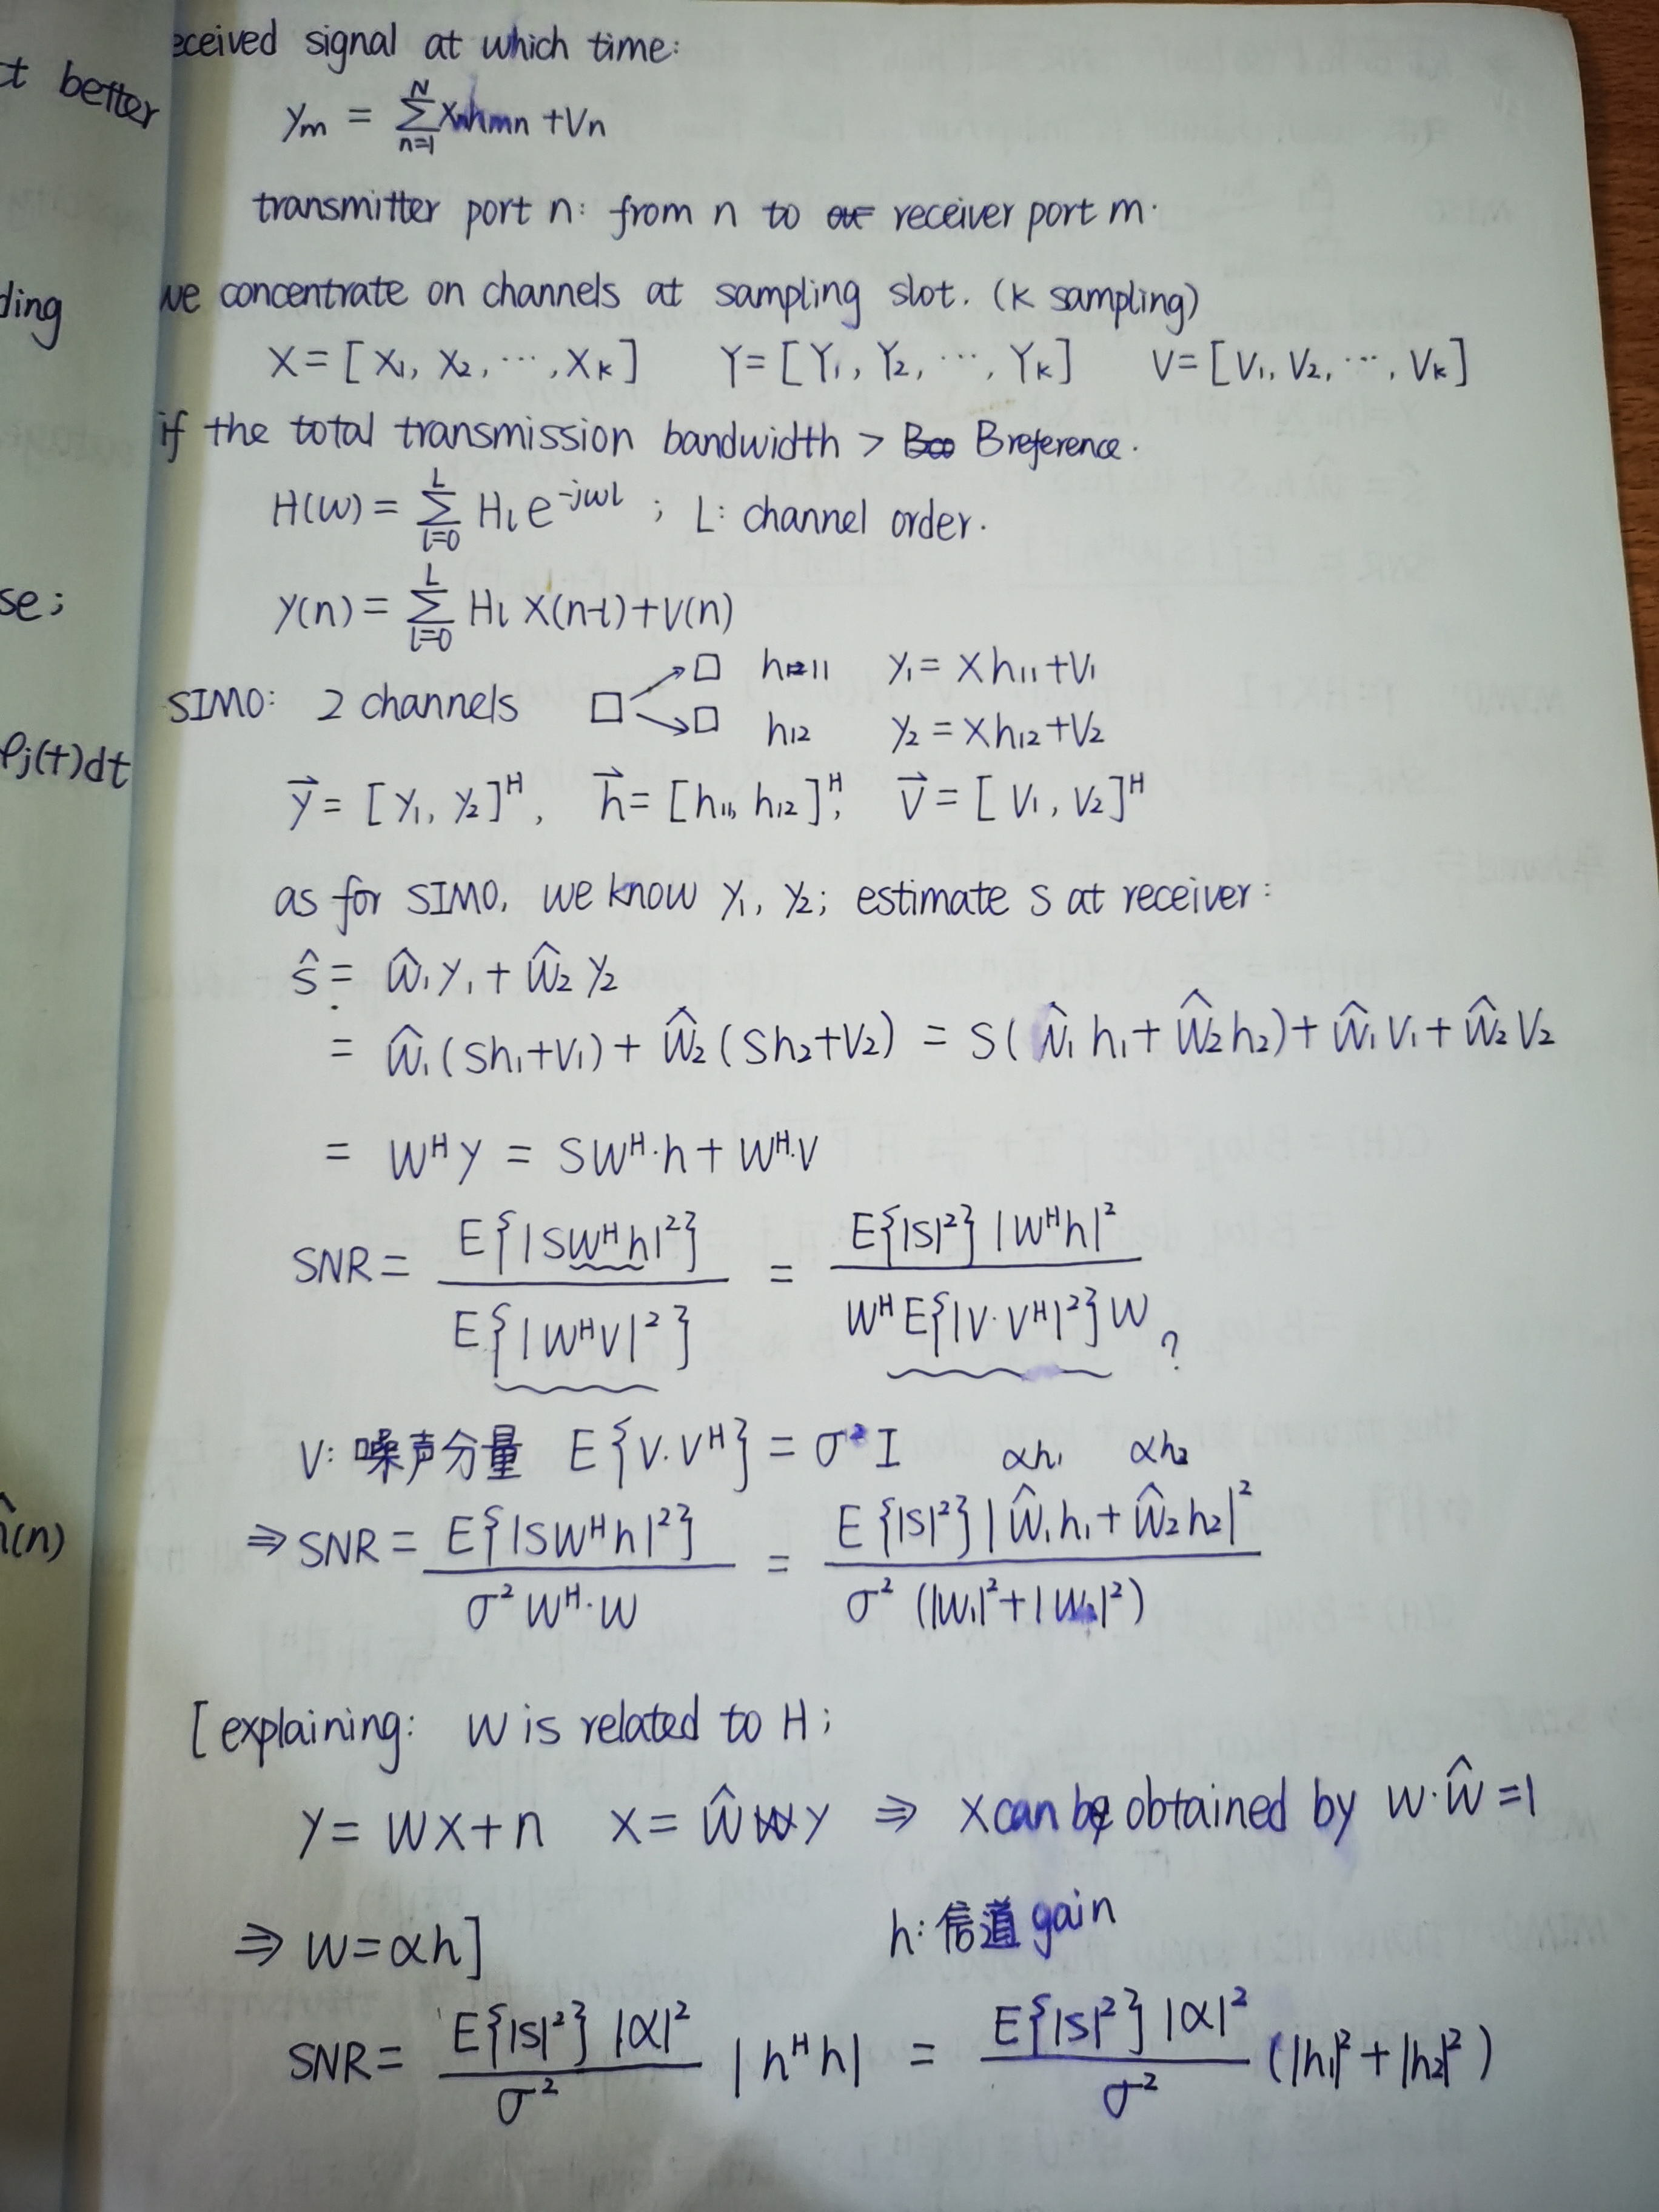 eceived signal at which time:
t better
ym = Σ_{n=1}^{N} xn hmn + Vn
transmitter port n: from n to receiver port m.
we concentrate on channels at sampling slot. (K sampling)
ding
X = [X1, X2, ..., XK] Y = [Y1, Y2, ..., YK] V = [V1, V2, ..., VK]
if the total transmission bandwidth > Breference.
H(w) = Σ_{l=0}^{L} Hl e^{-jwl} ; L: channel order.
se;
y(n) = Σ_{l=0}^{L} Hl X(n-l) + V(n)
h11 y1 = X h11 + V1
SIMO: 2 channels
h12 y2 = X h12 + V2
ρj(t)dt
y⃗ = [y1, y2]^H, h⃗ = [h11, h12]^H, V⃗ = [V1, V2]^H
as for SIMO, we know y1, y2; estimate S at receiver:
ŝ = ŵ1 y1 + ŵ2 y2
= ŵ1 (Sh1+V1) + ŵ2 (Sh2+V2) = S(ŵ1 h1 + ŵ2 h2) + ŵ1 V1 + ŵ2 V2
= W^H y = S W^H·h + W^H·V
SNR = E{|SW^H h|^2} / E{|W^H V|^2} = E{|S|^2} |W^H h|^2 / W^H E{|V·V^H|^2} W ?
V: 噪声分量 E{V·V^H} = σ^2 I αh1 αh2
⇒ SNR = E{|SW^H h|^2} / σ^2 W^H·W = E{|S|^2} |ŵ1 h1 + ŵ2 h2|^2 / σ^2 (|W1|^2 + |W2|^2)
(n)
[explaining: W is related to H;
y = WX + n X = Ŵ y ⇒ X can be obtained by W·Ŵ = 1
⇒ W = αh] h: 信道 gain
SNR = E{|S|^2} |α|^2 / σ^2 |h^H h| = E{|S|^2} |α|^2 / σ^2 (|h1|^2 + |h2|^2)